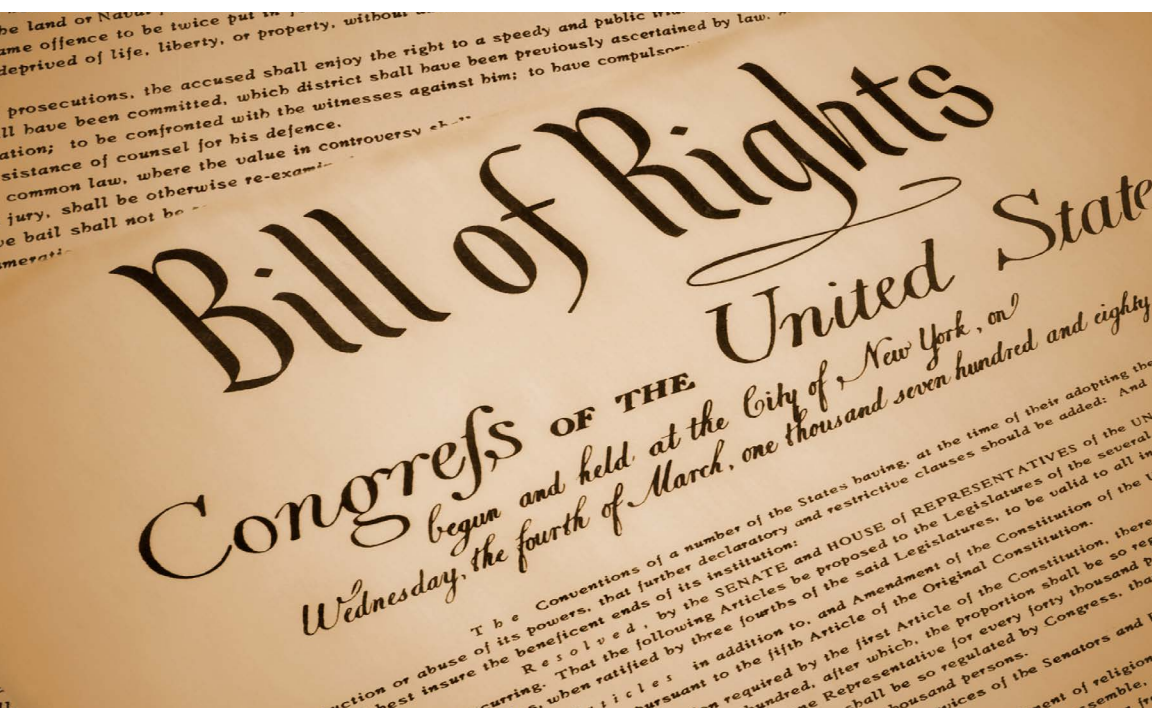 he land or Naval
ame offence to be twice put in
deprived of life, liberty, or property, without
prosecutions, the accused shall enjoy the right to a speedy and public
ll have been committed, which district shall have been previously ascertained by law.
ation; to be confronted with the witnesses against him; to have compulsor
sistance of counsel for his defence.
common law, where the value in controversy shall
jury, shall be otherwise re-exam
ve bail shall not be
Bill of Rights
Congreſs OF THE United State
begun and held at the City of New York, on
Wednesday, the fourth of March, one thousand seven hundred and eighty
The Conventions of a number of the States having, at the time of their adopting the
ction or abuse of its powers, that further declaratory and restrictive clauses should be added: And
best insure the beneficent ends of its institution:
Resolved, by the SENATE and HOUSE of REPRESENTATIVES of the UN
curring. That the following Articles be proposed to the Legislatures of the several
when ratified by three fourths of the said Legislatures, to be valid to all in
ticles in addition to, and Amendment of the Constitution of the U
ursuant to the fifth Article of the Original Constitution.
on required by the first Article of the Constitution, there
hundred, after which, the proportion shall be so reg
e Representative for every forty thousand p
hall be so regulated by Congress, tha
housand persons.
vices of the Senators and
ment of religion
ssemble,